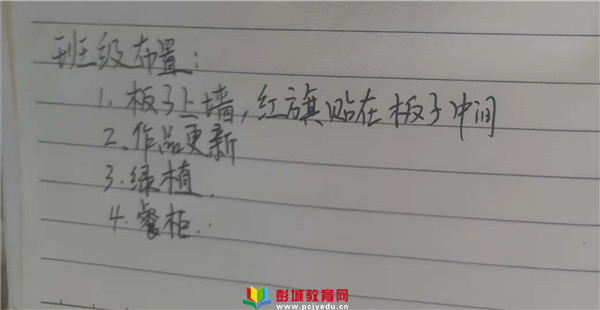 班级布置：
1. 板子上墙，红旗贴在板子中间
2. 作品更新
3. 绿植
4. 餐柜.
彭城教育网
www.pcjyedu.cn